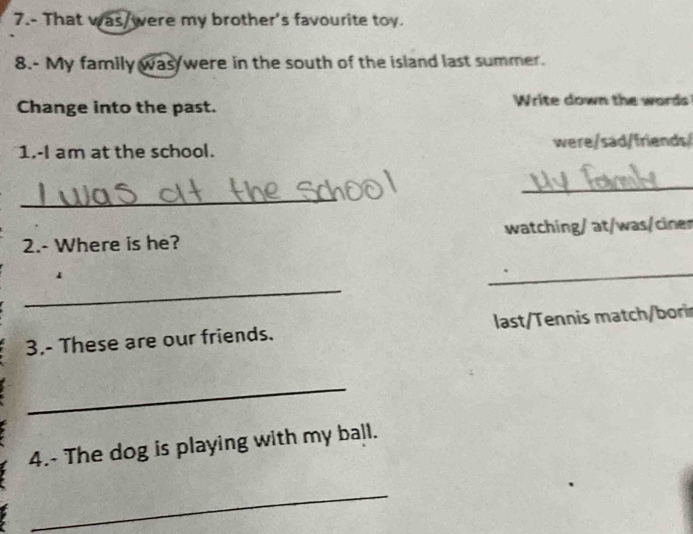 7.- That was/were my brother's favourite toy.
8.- My family was/were in the south of the island last summer.
Change into the past.
Write down the words
1.-I am at the school.
were/sad/friends/
I was at the school
My family
2.- Where is he?
watching/ at/was/ciner
3.- These are our friends.
last/Tennis match/borin
4.- The dog is playing with my ball.